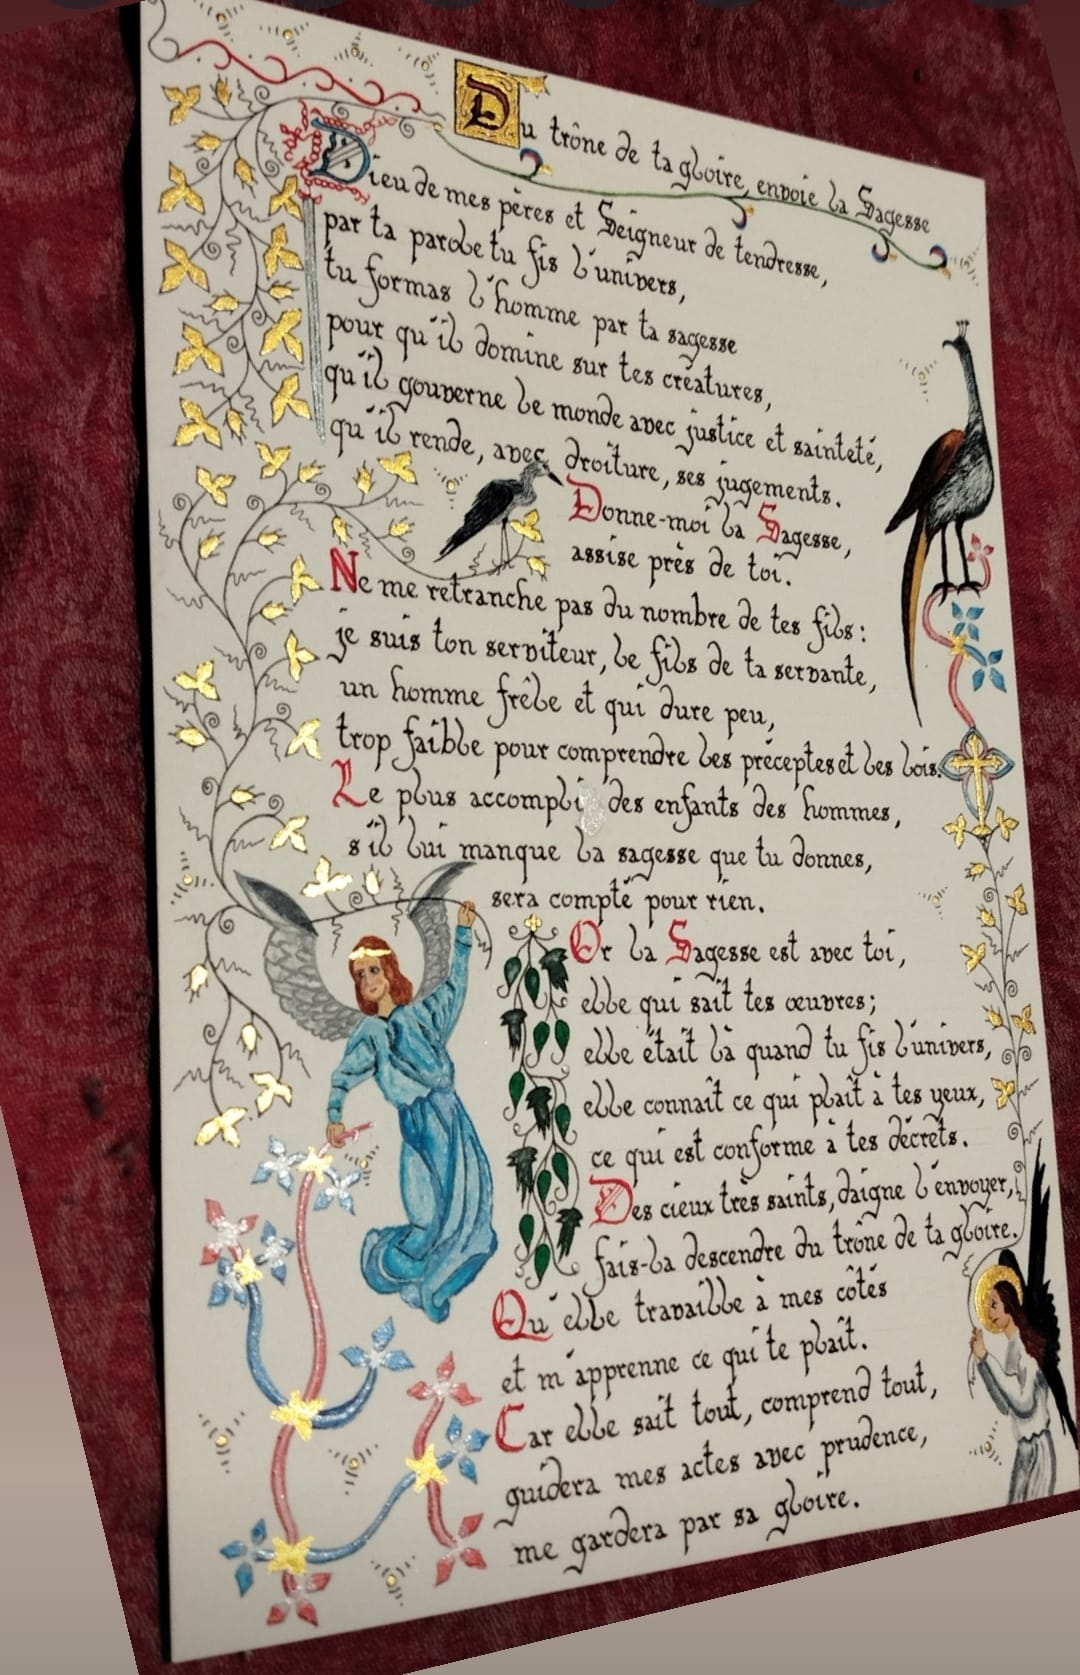 Du trône de ta gloire, envoie la Sagesse
Dieu de mes pères et Seigneur de tendresse,
par ta parole tu fis l'univers,
tu formas l'homme par ta sagesse
pour qu'il domine sur tes créatures,
qu'il gouverne le monde avec justice et sainteté,
qu'il rende, avec droiture, ses jugements.
Donne-moi la Sagesse,
assise près de toi.
Ne me retranche pas du nombre de tes fils :
je suis ton serviteur, le fils de ta servante,
un homme frêle et qui dure peu,
trop faible pour comprendre les préceptes et les lois.
Le plus accompli des enfants des hommes,
s'il lui manque la sagesse que tu donnes,
sera compté pour rien.
Or la Sagesse est avec toi,
elle qui sait tes œuvres;
elle était là quand tu fis l'univers,
elle connaît ce qui plaît à tes yeux,
ce qui est conforme à tes décrets.
Des cieux très saints, daigne l'envoyer,
fais-la descendre du trône de ta gloire.
Qu'elle travaille à mes côtés
et m'apprenne ce qui te plaît.
Car elle sait tout, comprend tout,
guidera mes actes avec prudence,
me gardera par sa gloire.